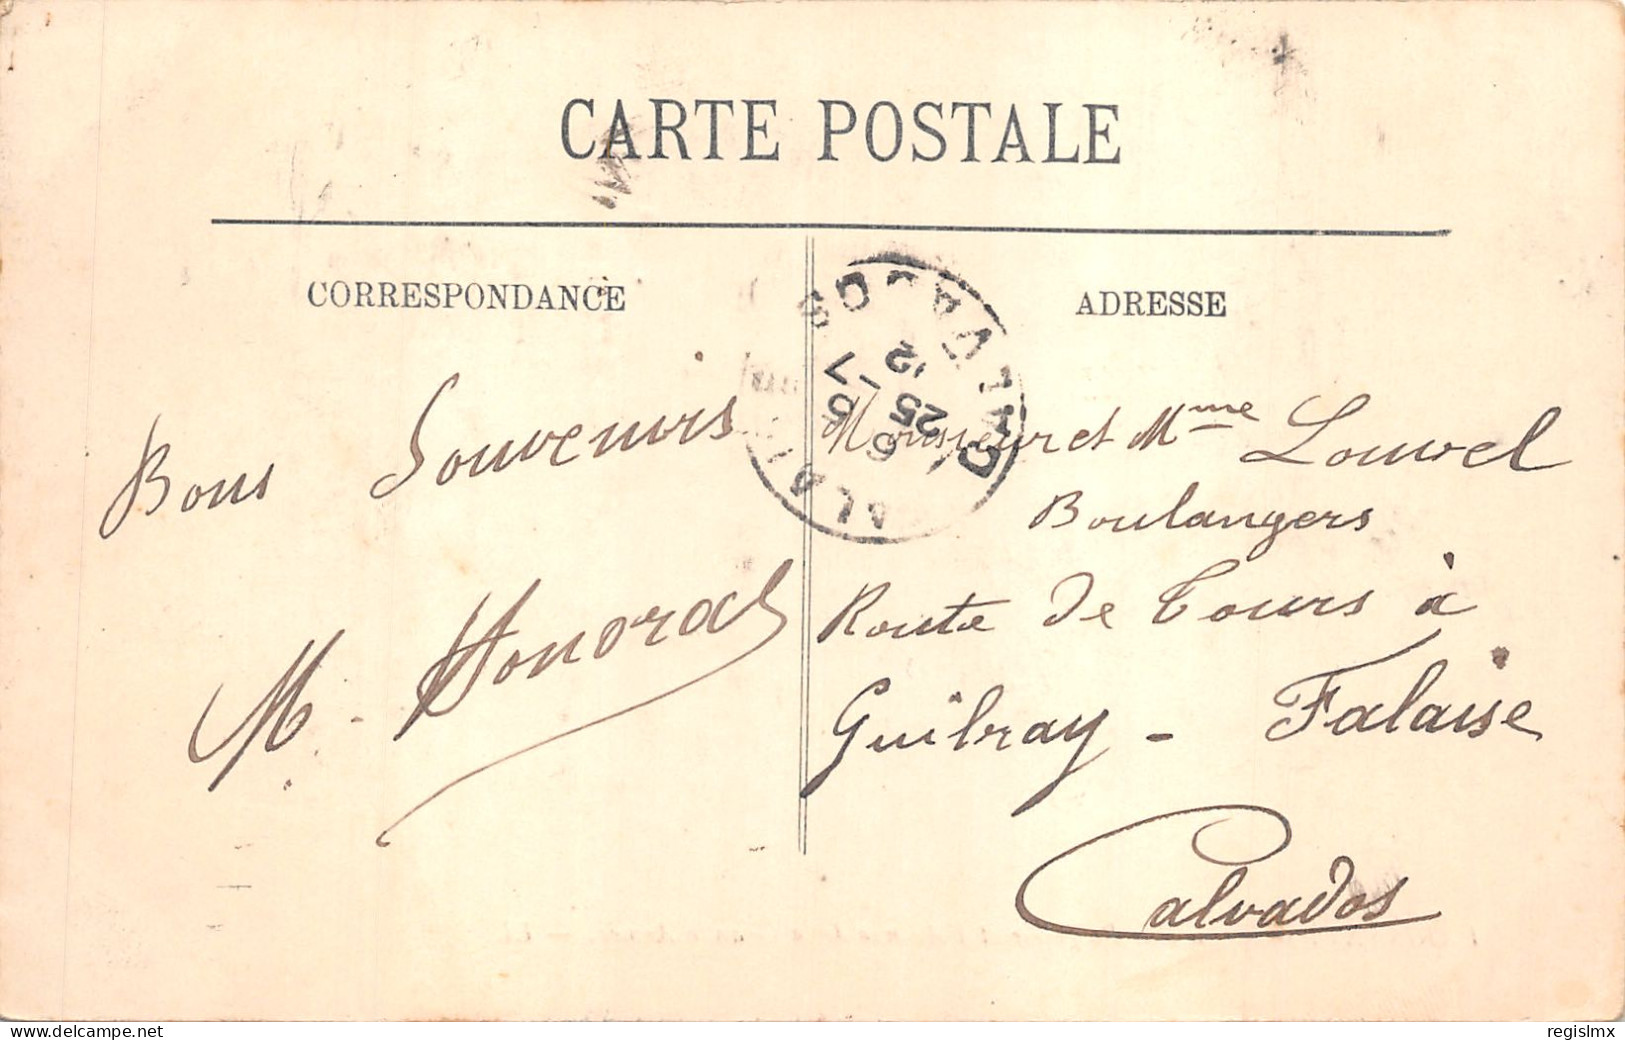 CARTE POSTALE
CORRESPONDANCE
Bons Souvenirs
M. Honorat
ADRESSE
Monsieur et Mme Louvel
Boulangers
Route de Tours à
Guibray - Falaise
Calvados
CALVADOS
25
delcampe.net
regislmx